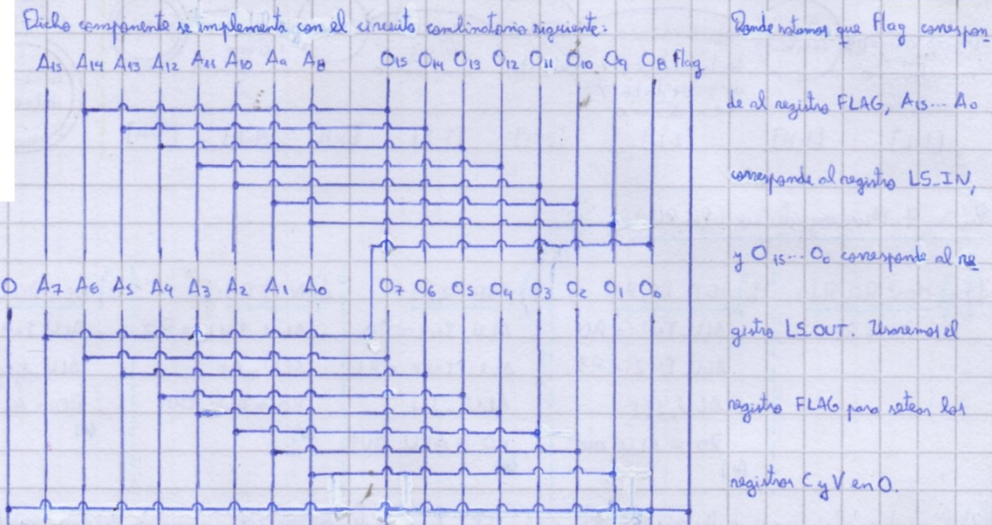 Dicho componente se implementa con el circuito combinatorio siguiente:
A15 A14 A13 A12 A11 A10 A9 A8 O15 O14 O13 O12 O11 O10 O9 O8 Flag
0 A7 A6 A5 A4 A3 A2 A1 A0 O7 O6 O5 O4 O3 O2 O1 O0
Donde notamos que Flag correspon
de al registro FLAG, A15... A0
corresponde al registro LS_IN,
y O15... O0 corresponde al re
gistro LS_OUT. Usaremos el
registro FLAG para setear los
registros C y V en 0.